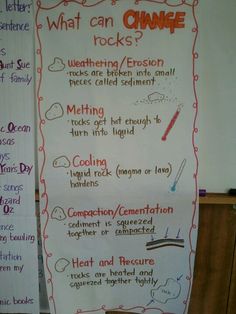 What can CHANGE
rocks?
Weathering/Erosion
- rocks are broken into small
pieces called sediment.
Melting
- rocks get hot enough to
turn into liquid
Cooling
- liquid rock (magma or lava)
hardens
Compaction/Cementation
- sediment is squeezed
together or compacted.
Heat and Pressure
- rocks are heated and
squeezed together tightly
rock
letter!
entence
Aunt Sue
f family
Ocean
nsas
ays
Year's Day
songs
izard
Oz
ence
ng bowling
tation
en my
mic books